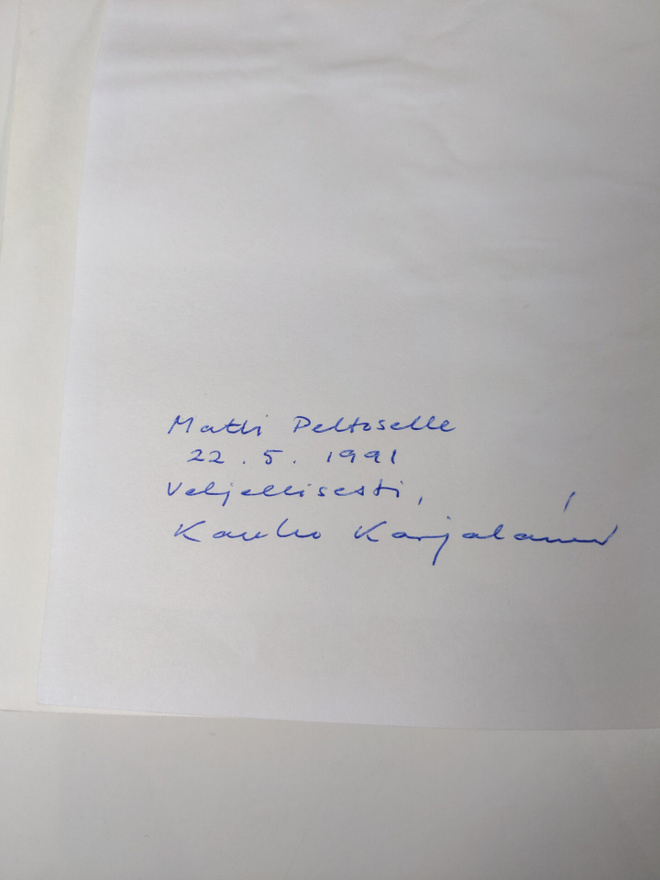 Matti Peltoselle
22.5.1991
Veljellisesti,
Kauko Karjalainen